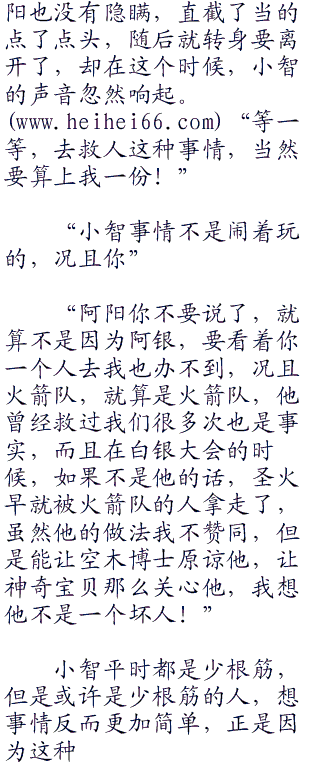 阳也没有隐瞒，直截了当的
点了点头，随后就转身要离
开了，却在这个时候，小智
的声音忽然响起。
(www.heihei66.com)“等一
等，去救人这种事情，当然
要算上我一份！”
“小智事情不是闹着玩
的，况且你”
“阿阳你不要说了，就
算不是因为阿银，要看着你
一个人去我也办不到，况且
火箭队，就算是火箭队，他
曾经救过我们很多次也是事
实，而且在白银大会的时
候，如果不是他的话，圣火
早就被火箭队的人拿走了，
虽然他的做法我不赞同，但
是能让空木博士原谅他，让
神奇宝贝那么关心他，我想
他不是一个坏人！”
小智平时都是少根筋，
但是或许是少根筋的人，想
事情反而更加简单，正是因
为这种